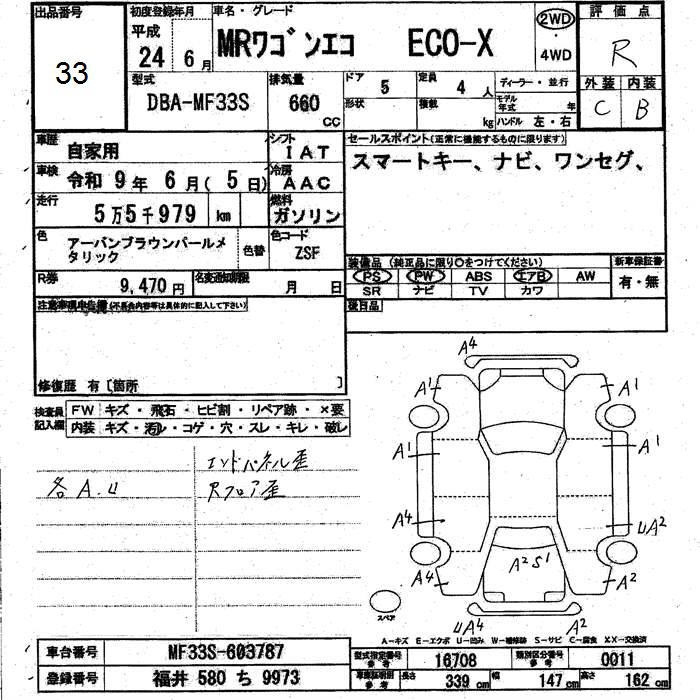 出品番号
33
初度登録年月
平成
24 6月
車名・グレード
MRワゴンエコ ECO-X
2WD
・
4WD
評価点
R
外装 内装
C B
型式
DBA-MF33S
排気量
660
cc
ドア
5
定員
4人
形状
積載
kg
ディーラー・並行
モデル年式 年
ハンドル 左・右
車歴
自家用
シフト
IAT
車検
令和 9年 6月( 5日)
冷房
AAC
走行
5万5千979 km
燃料
ガソリン
色
アーバンブラウンパールメ
タリック
色替
色コード
ZSF
R券
9,470円
名変通知期限
月 日
セールスポイント(正常に機能するものに限ります)
スマートキー、ナビ、ワンセグ、
装備品 (純正品に限り○をつけてください)
PS PW ABS エアB AW
SR ナビ TV カワ
新車保証書
有・無
後日品
注意事項申告欄(不具合内容等は具体的に記入して下さい)
修復歴 有〔箇所 〕
検査員
記入欄
FW キズ・飛石・ヒビ割・リペア跡・×要
内装 キズ・汚レ・コゲ・穴・スレ・キレ・破レ
エンドパネル歪
各A.U
Rフロア歪
A4
A1 A1
A1 A1
A4 UA2
A4 A2S1 A2
UA4 A2
スペア
A-キズ E-エクボ U-凹み W-補修跡 S-サビ C-腐食 XX-交換済
車台番号
MF33S-603787
登録番号
福井 580 ち 9973
型式指定番号
参考
16708
類別区分番号
参考
0011
参考
長さ 339 cm
幅 147 cm
高さ 162 cm